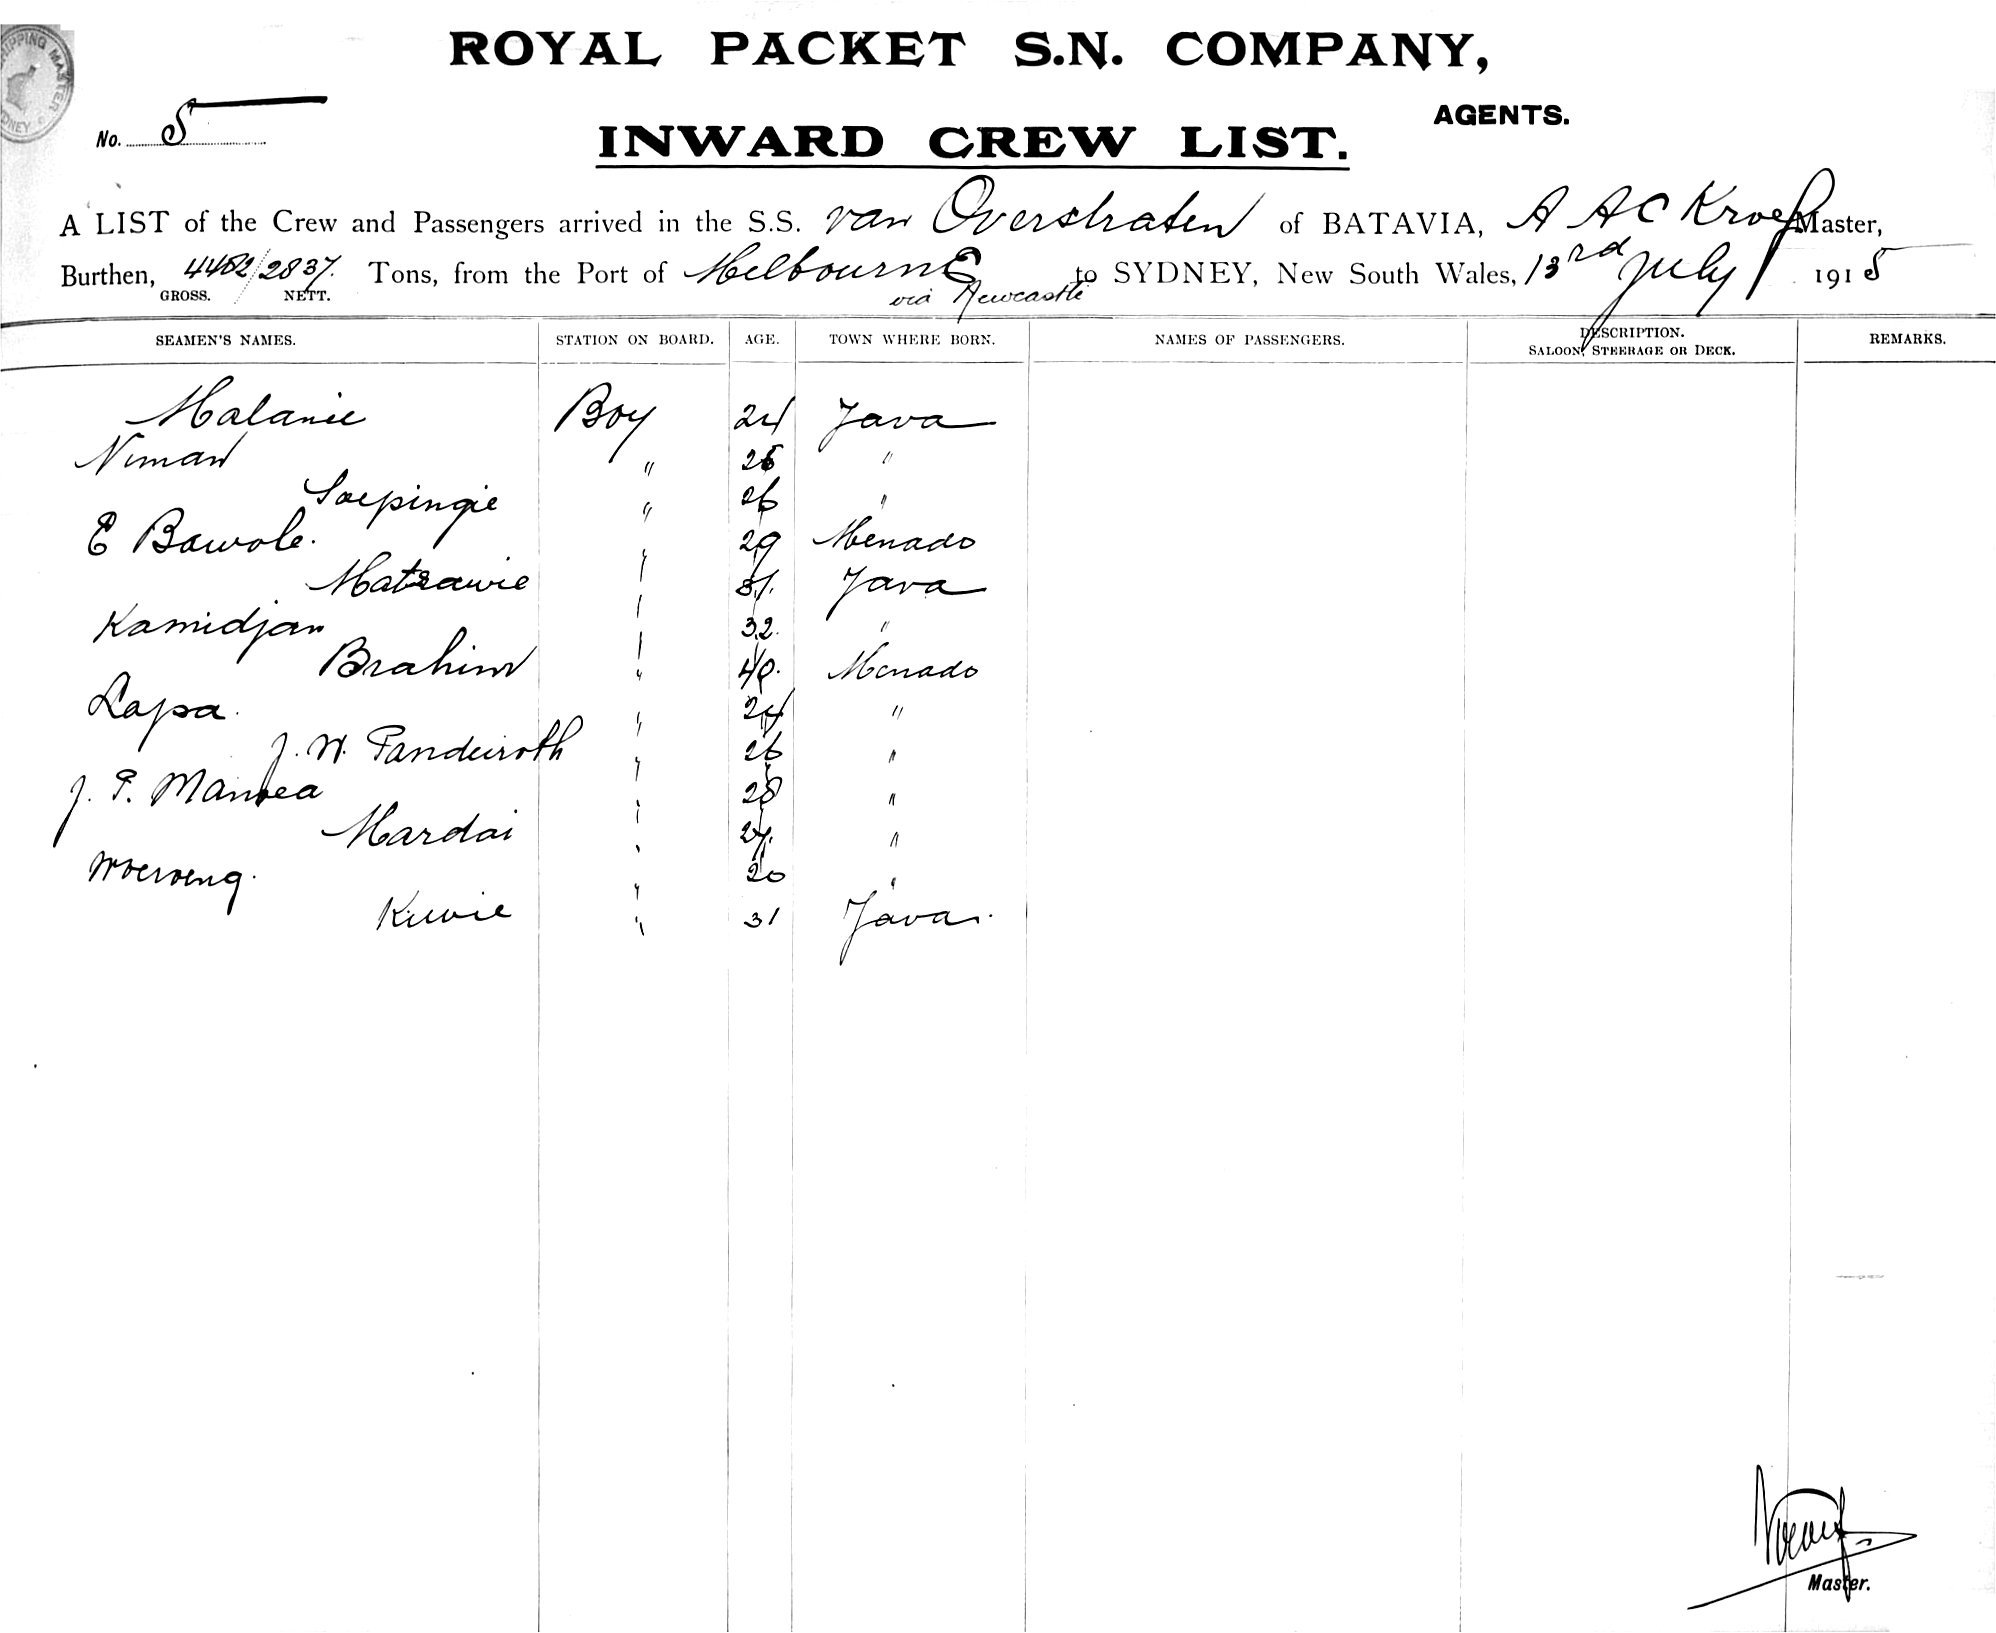 SHIPPING MASTER
SYDNEY
ROYAL PACKET S.N. COMPANY,
AGENTS.
No. 5
INWARD CREW LIST.
A LIST of the Crew and Passengers arrived in the S.S. van Overstraten of BATAVIA, A A C Kroef Master,
Burthen, 4482/2837. Tons, from the Port of MelbournE to SYDNEY, New South Wales, 13rd July 1915
GROSS. NETT. via Newcastle
SEAMEN'S NAMES. STATION ON BOARD. AGE. TOWN WHERE BORN. NAMES OF PASSENGERS. DESCRIPTION. SALOON, STEERAGE OR DECK. REMARKS.
Malanie Boy 24 Java
Niman " 25 "
Soepingie " 26 "
E Bawole. " 29 Menado
Matrawie " 31. Java
Kamidjan " 32. "
Brahim " 40. Menado
Lapa. " 24 "
J. W. Pandeiroth " 26 "
J. P. Manoea " 28 "
Mardai " 27. "
Woewoeng. " 20 "
Kuwie " 31 Java.
Master.